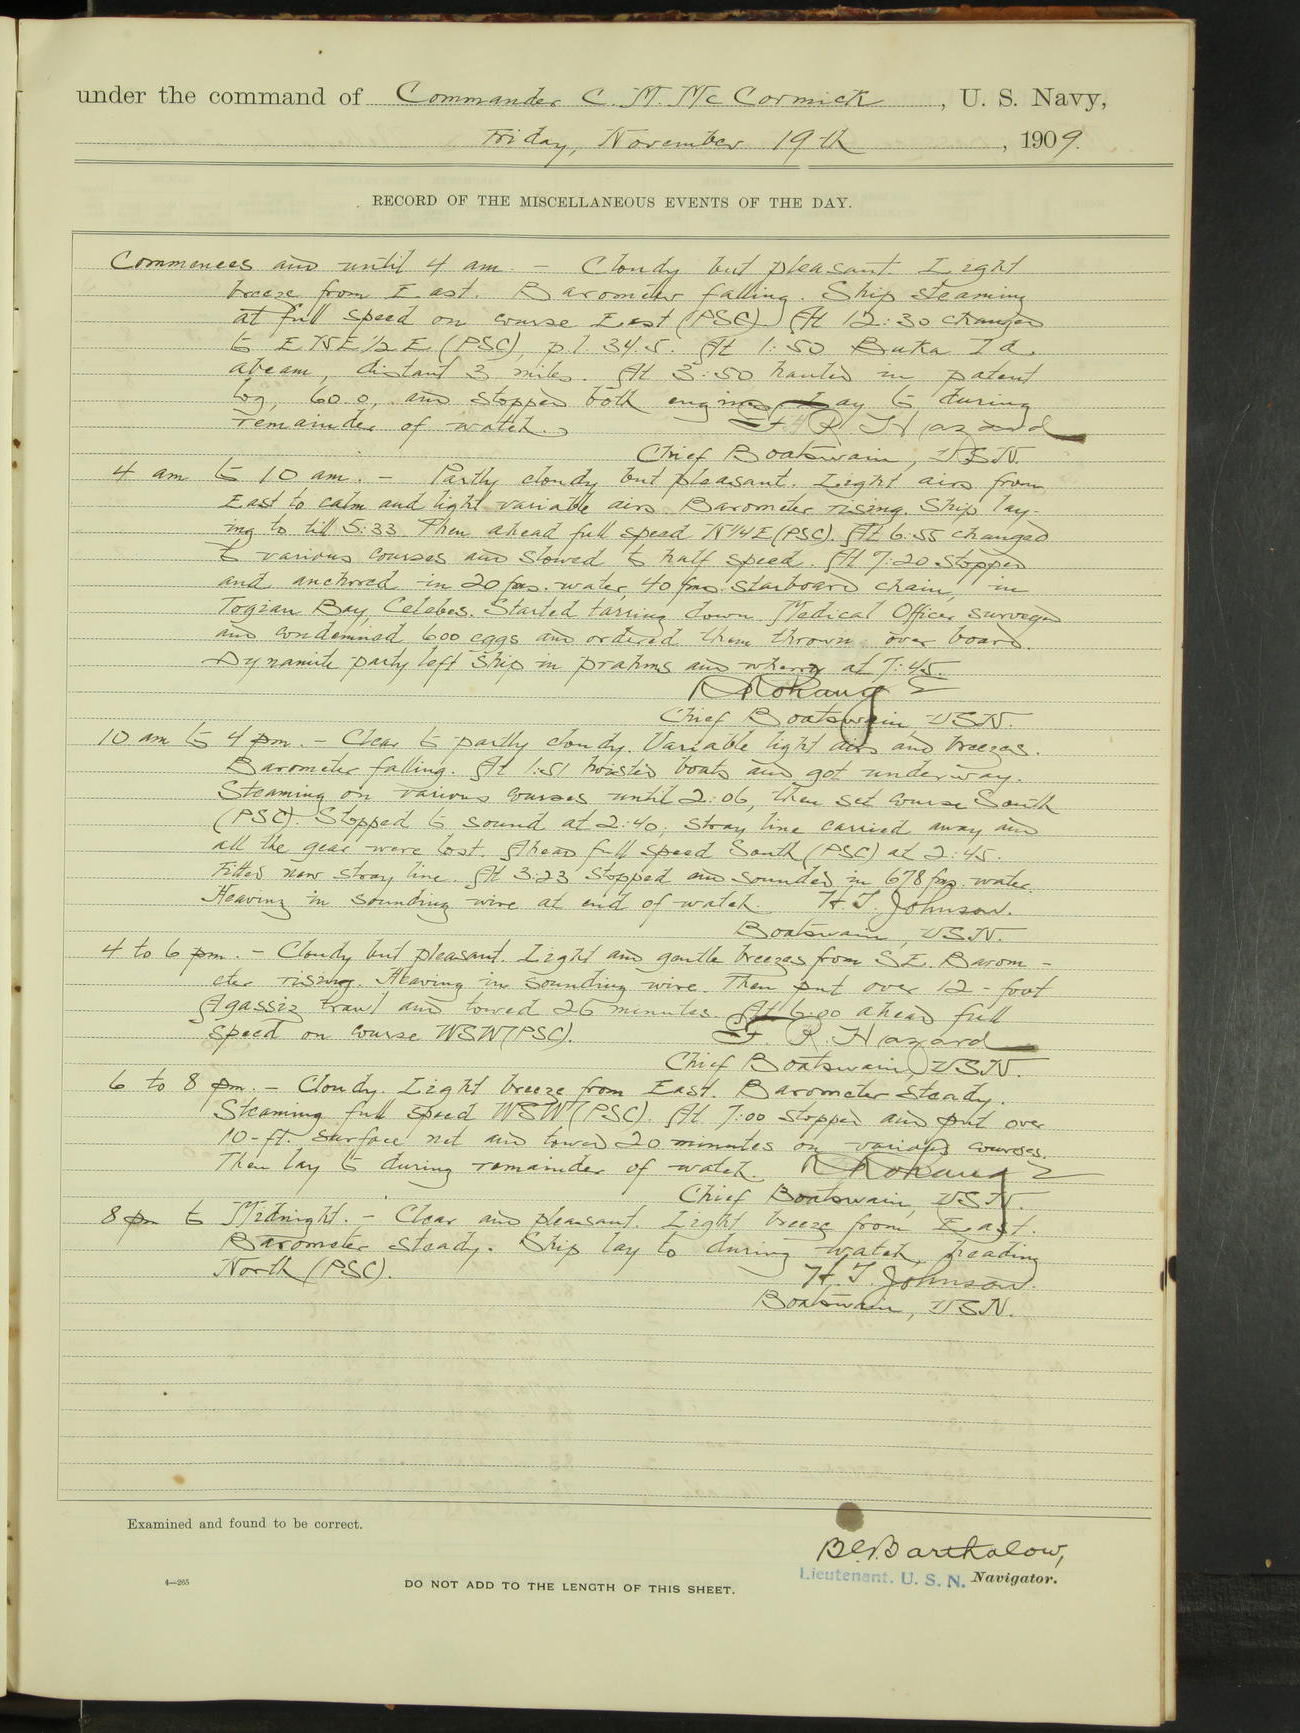 under the command of Commander C. M. McCormick, U. S. Navy,
Friday, November 19th, 1909.
RECORD OF THE MISCELLANEOUS EVENTS OF THE DAY.
Commences and until 4 am. - Cloudy but pleasant. Light
breeze from East. Barometer falling. Ship steaming
at full speed on course East (PSC). At 12:30 changed
to ENE½E (PSC), p.l. 34.5. At 1:50 Buka Id.
abeam, distant 3 miles. At 3:50 hauled in patent
log, 60.0, and stopped both engines. Lay to during
remainder of watch. F. R. Hazard
Chief Boatswain, USN.
4 am to 10 am. - Partly cloudy but pleasant. Light airs from
East to calm and light variable airs. Barometer rising. Ship lay-
ing to till 5:33. Then ahead full speed N¼E (PSC). At 6:55 changed
to various courses and slowed to half speed. At 7:20 stopped
and anchored in 20 fms. water, 40 fms. starboard chain, in
Togian Bay, Celebes. Started tarring down. Medical Officer surveyed
and condemned 600 eggs and ordered them thrown over board.
Dynamite party left ship in prahms and wherry at 7:45.
Chief Boatswain, USN.
10 am to 4 pm. - Clear to partly cloudy. Variable light airs and breezes.
Barometer falling. At 1:51 hoisted boats and got underway.
Steaming on various courses until 2:06, then set course South
(PSC). Stopped to sound at 2:40; stray line carried away and
all the gear were lost. Ahead full speed South (PSC) at 2:45.
Fitted new stray line. At 3:23 stopped and sounded in 678 fms. water.
Heaving in sounding wire at end of watch. H. T. Johnson.
Boatswain, USN.
4 to 6 pm. - Cloudy but pleasant. Light and gentle breezes from SE. Barom-
eter rising. Heaving in sounding wire. Then put over 12-foot
Agassiz trawl and towed 26 minutes. At 6:00 ahead full
speed on course WSW (PSC). F. R. Hazard
Chief Boatswain, USN.
6 to 8 pm. - Cloudy. Light breeze from East. Barometer steady.
Steaming full speed WSW (PSC). At 7:00 stopped and put over
10-ft. surface net and towed 20 minutes on various courses.
Then lay to during remainder of watch.
Chief Boatswain, USN.
8 pm to Midnight. - Clear and pleasant. Light breeze from East.
Barometer steady. Ship lay to during watch, heading
North (PSC). H. T. Johnson.
Boatswain, USN.
Examined and found to be correct.
Lieutenant. U. S. N. Navigator.
4—265
DO NOT ADD TO THE LENGTH OF THIS SHEET.